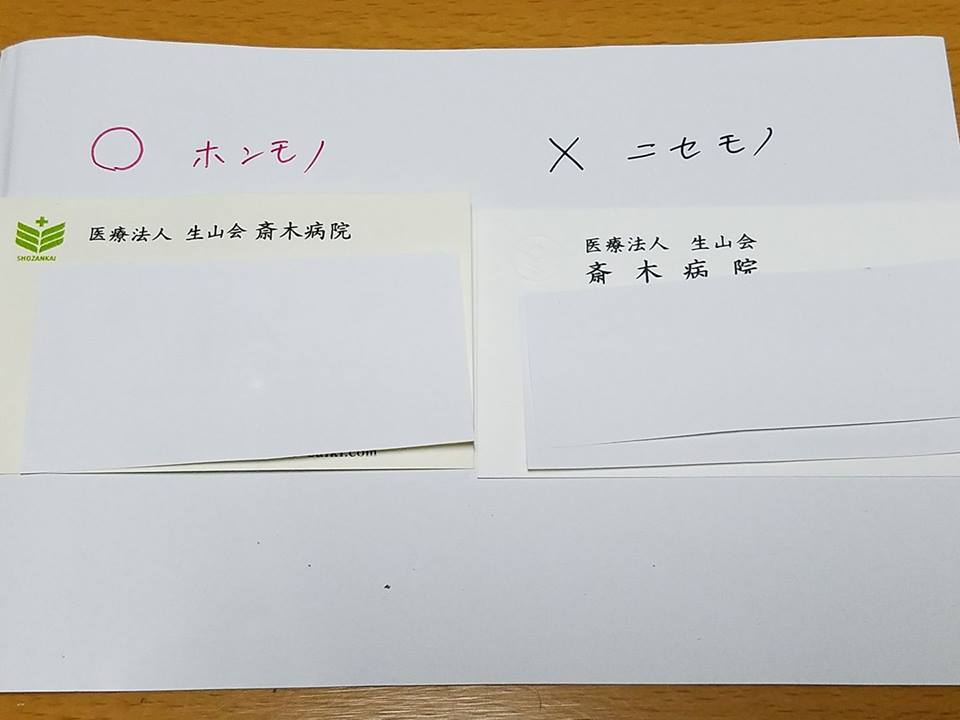 ○ ホンモノ
× ニセモノ
SHOZANKAI
医療法人 生山会 斎木病院
医療法人 生山会
斎木病院